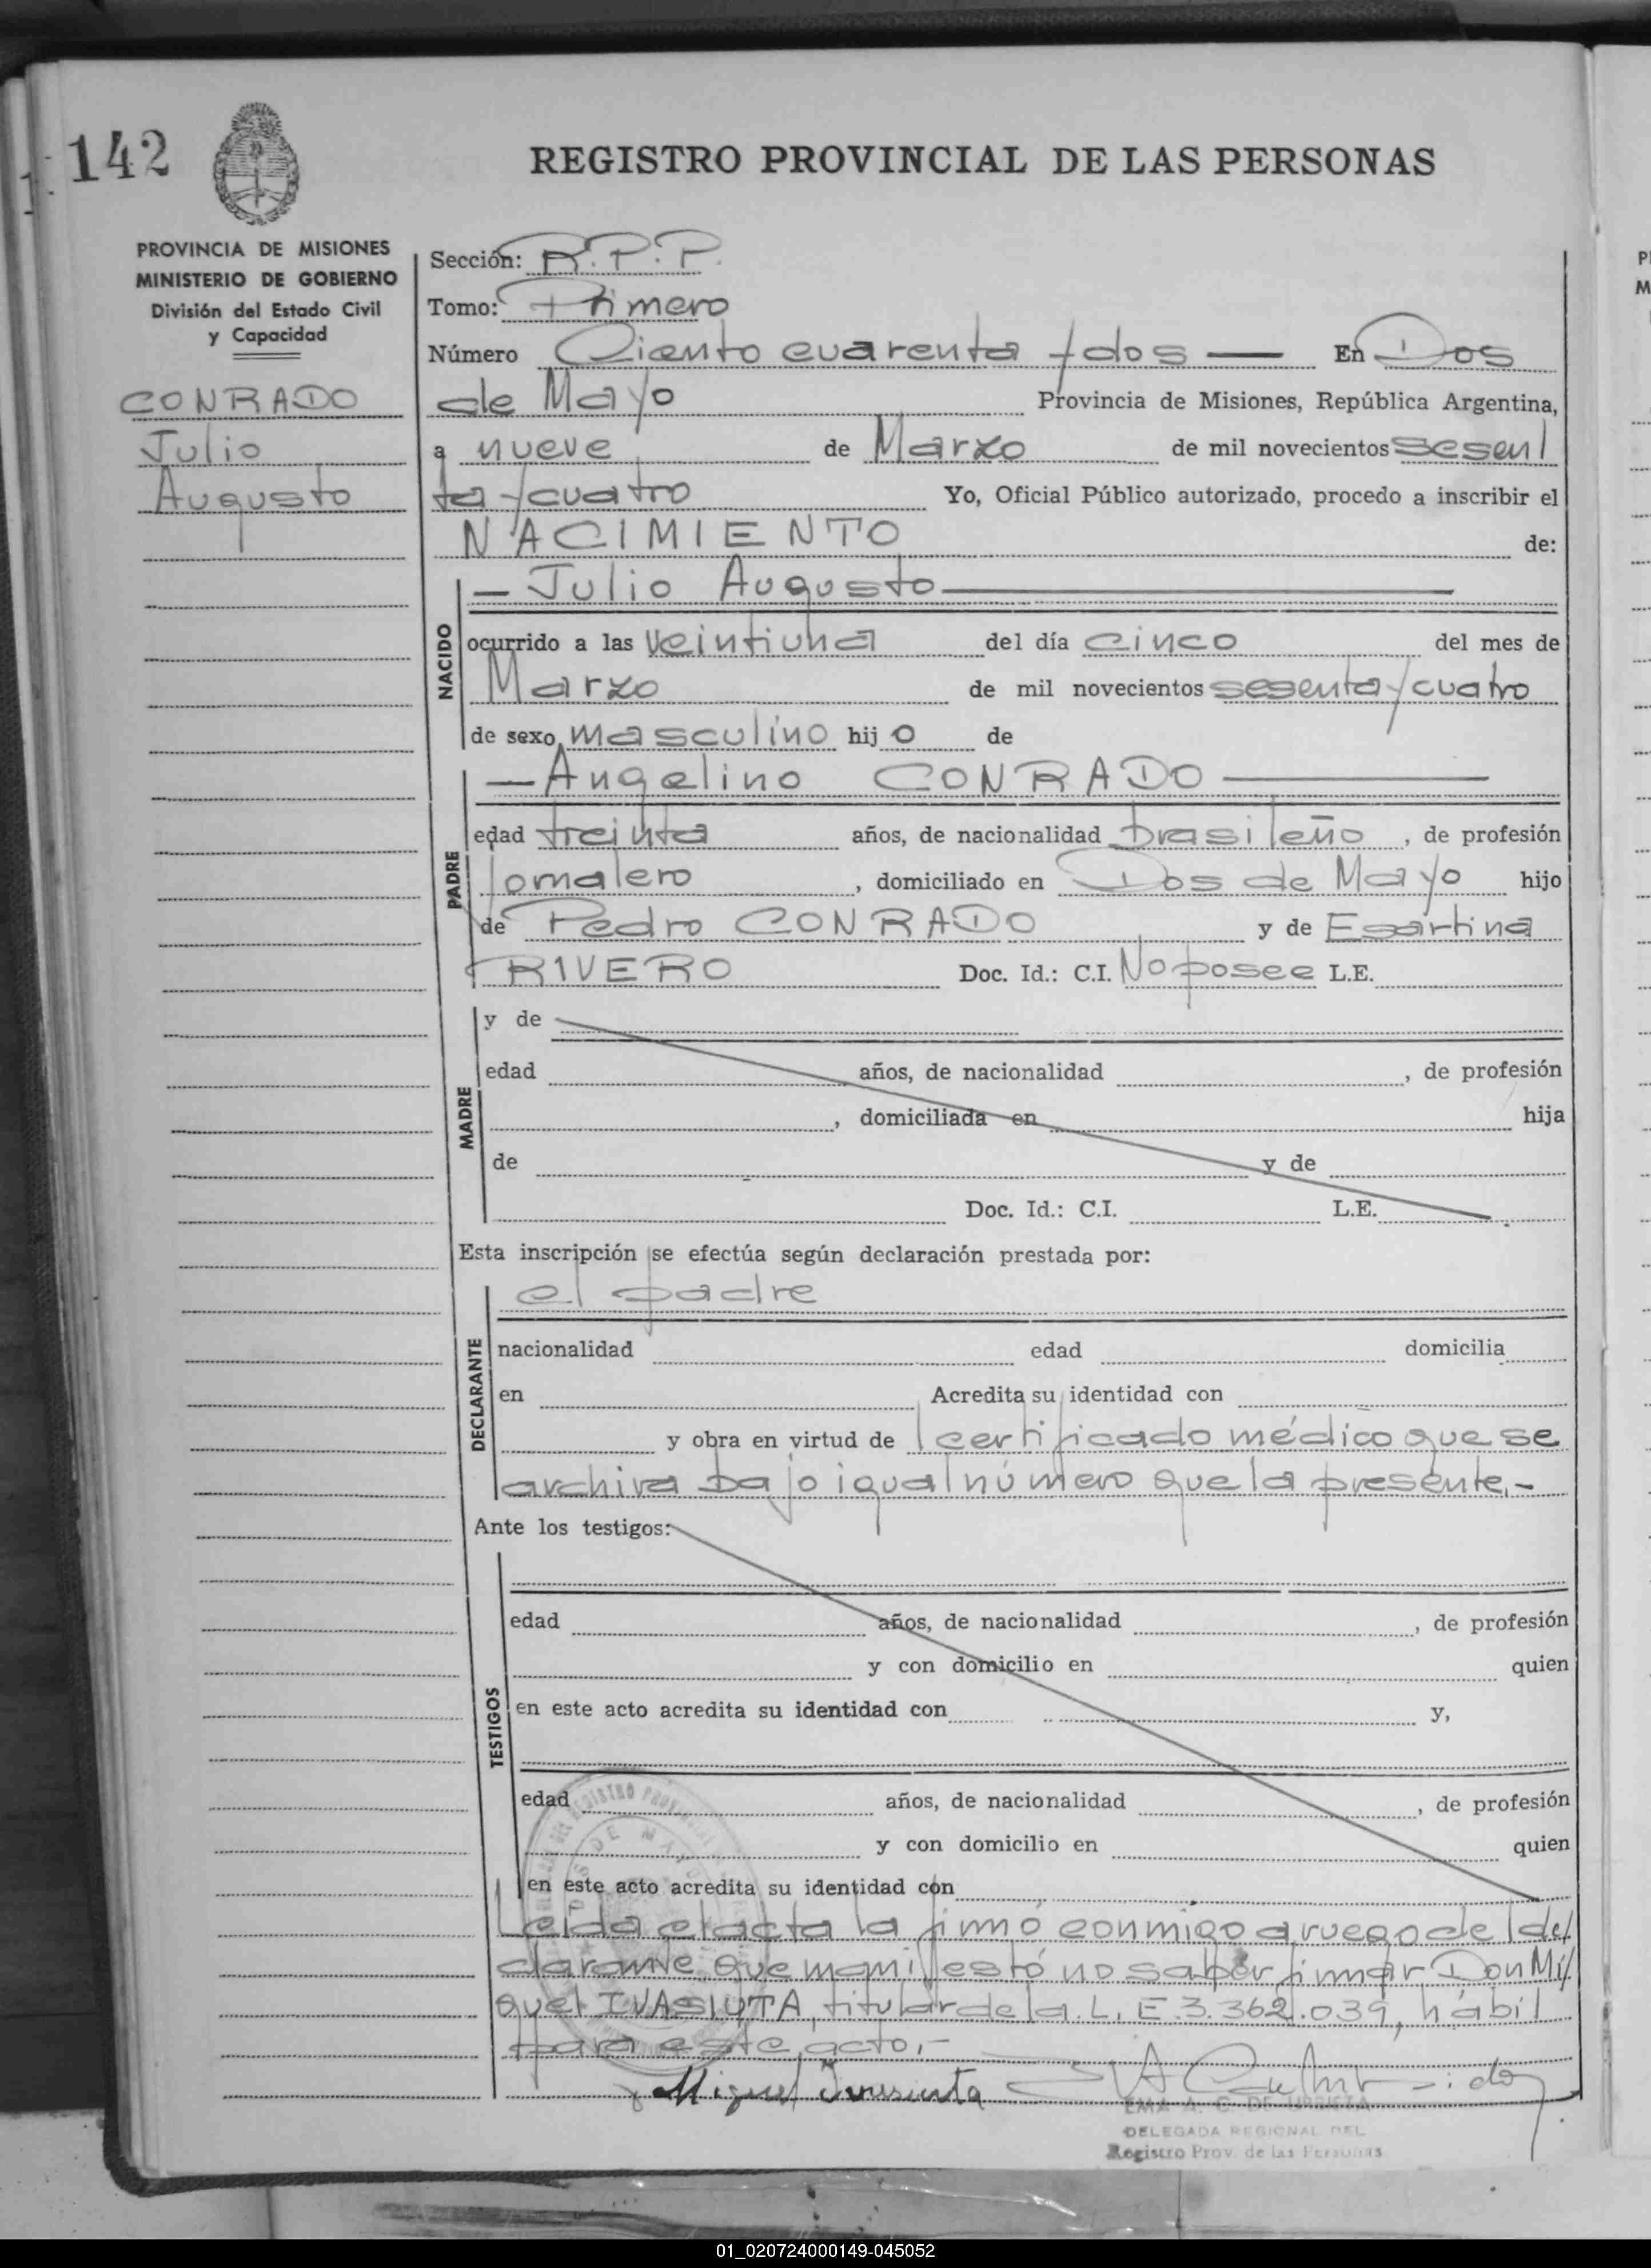 142
REGISTRO PROVINCIAL DE LAS PERSONAS
PROVINCIA DE MISIONES
MINISTERIO DE GOBIERNO
División del Estado Civil
y Capacidad
CONRADO
Julio
Augusto
Sección: R.P.P.
Tomo: Primero
Número Ciento cuarenta y dos — En Dos
de Mayo Provincia de Misiones, República Argentina,
a nueve de Marzo de mil novecientos sesen
ta y cuatro Yo, Oficial Público autorizado, procedo a inscribir el
NACIMIENTO de:
— Julio Augusto —
NACIDO
ocurrido a las veintiuna del día cinco del mes de
Marzo de mil novecientos sesenta y cuatro
de sexo masculino hijo de
— Angelino CONRADO —
PADRE
edad treinta años, de nacionalidad brasileño, de profesión
jornalero, domiciliado en Dos de Mayo hijo
de Pedro CONRADO y de Esartina
RIVERO Doc. Id.: C.I. No posee L.E.
MADRE
y de
edad años, de nacionalidad , de profesión
, domiciliada en hija
de y de
Doc. Id.: C.I. L.E.
Esta inscripción se efectúa según declaración prestada por:
el padre
DECLARANTE
nacionalidad edad domicilia
en Acredita su identidad con
y obra en virtud de l certificado médico que se
archiva bajo igual número que la presente.-
Ante los testigos:
TESTIGOS
edad años, de nacionalidad , de profesión
y con domicilio en quien
en este acto acredita su identidad con y,
edad años, de nacionalidad , de profesión
y con domicilio en quien
en este acto acredita su identidad con
Leída el acta la firmó conmigo a ruego del de
clarante que manifestó no saber firmar Don Mi
guel IVASIUTA, titular de la L.E. 3.362.039, hábil
para este acto.-
Miguel
EMA A. C. DE URRIETA
DELEGADA REGIONAL DEL
Registro Prov. de las Personas
01_020724000149-045052